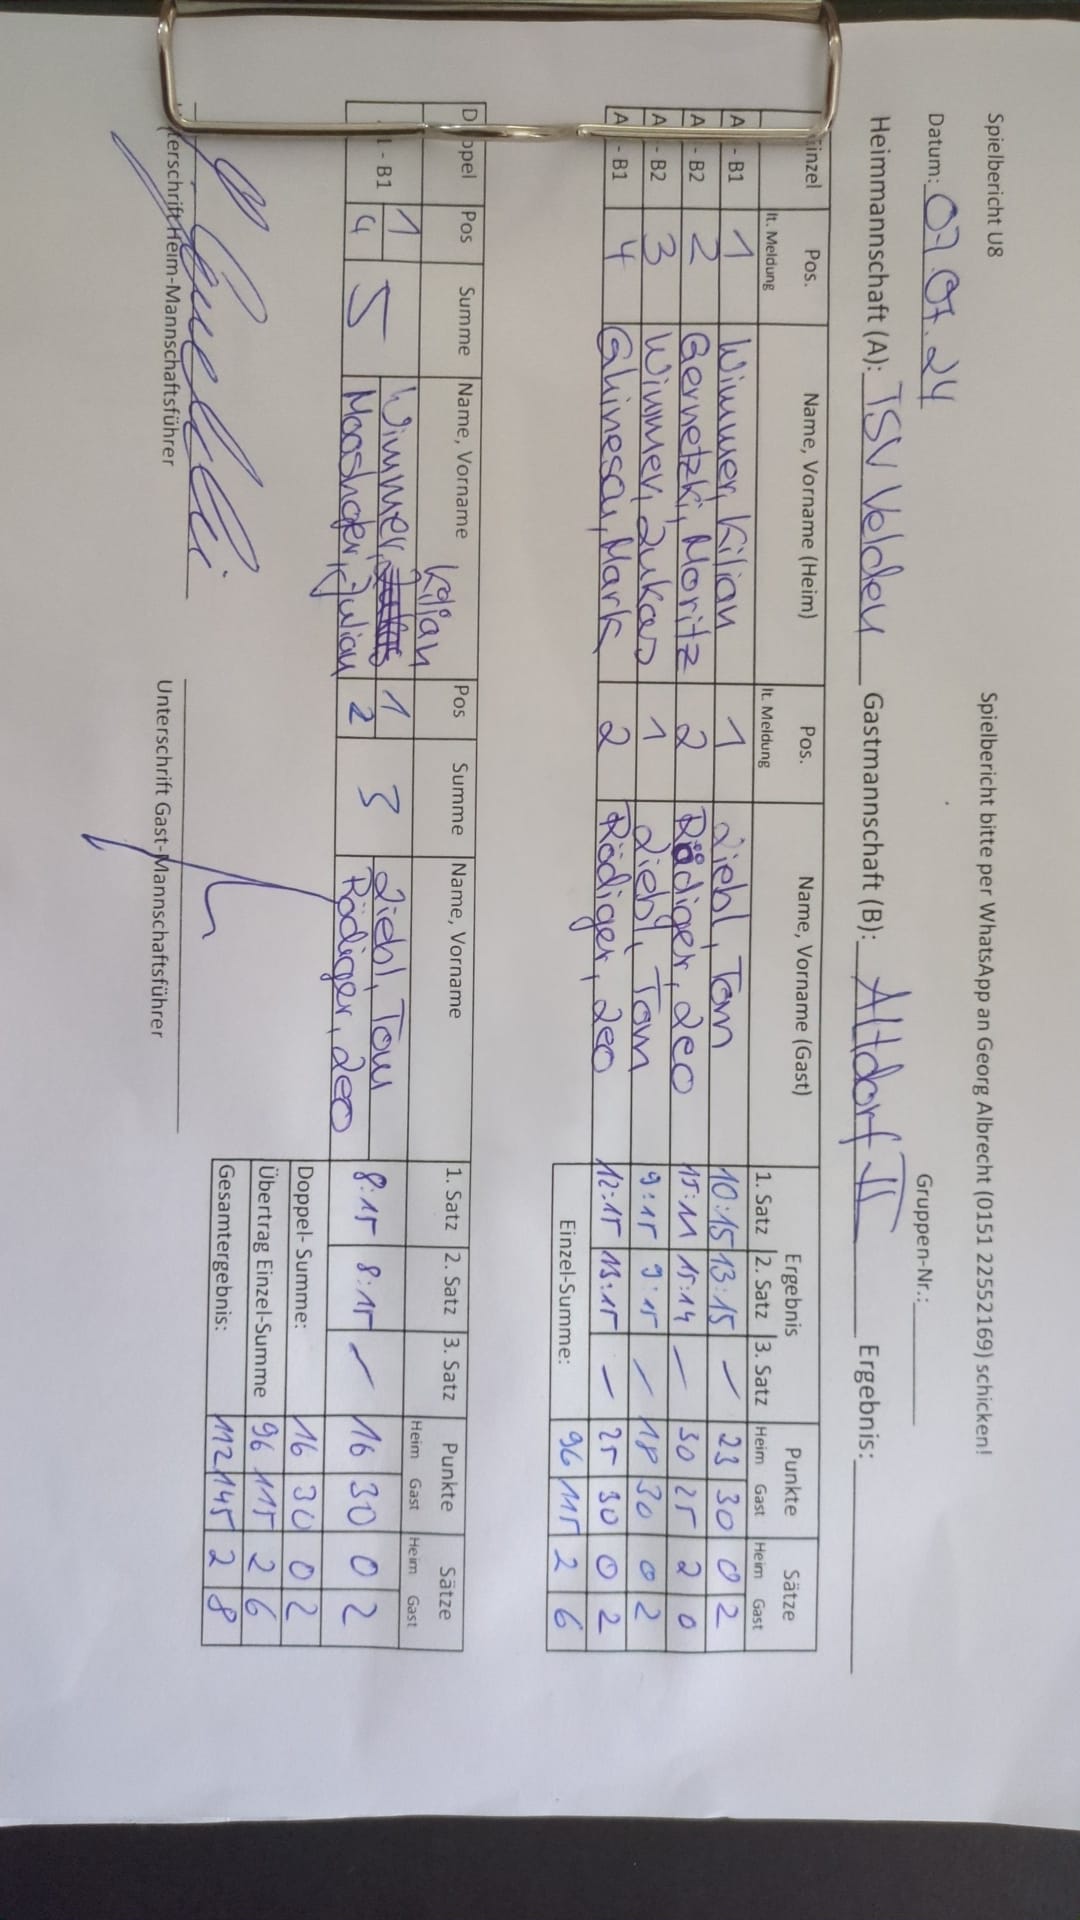 Spielbericht U8 Spielbericht bitte per WhatsApp an Georg Albrecht (0151 22552169) schicken!
Datum: 07.07.24 Gruppen-Nr.:
Heimmannschaft (A): TSV Velden Gastmannschaft (B): Altdorf II Ergebnis:
inzel Pos. Name, Vorname (Heim) Pos. Name, Vorname (Gast) Ergebnis Punkte Sätze
lt. Meldung lt. Meldung 1. Satz 2. Satz 3. Satz Heim Gast Heim Gast
A - B1 1 Wimmer, Kilian 1 Liebl, Tom 10:15 13:15 – 23 30 0 2
A - B2 2 Gernetzki, Moritz 2 Rödiger, Leo 15:11 15:14 – 30 25 2 0
A - B2 3 Wimmer, Lukas 1 Liebl, Tom 9:15 9:15 – 18 30 0 2
A - B1 4 Ghinescu, Mark 2 Rödiger, Leo 12:15 13:15 – 25 30 0 2
Einzel-Summe: 96 115 2 6
D ppel Pos Summe Name, Vorname Pos Summe Name, Vorname 1. Satz 2. Satz 3. Satz Punkte Sätze
Heim Gast Heim Gast
Kilian
- B1 1 5 Wimmer, 1 3 Liebl, Tom 8:15 8:15 – 16 30 0 2
4 Mooshofer, Julian 2 Rödiger, Leo
Doppel- Summe: 16 30 0 2
Übertrag Einzel-Summe 96 115 2 6
Gesamtergebnis: 112 145 2 8
terschrift Heim-Mannschaftsführer Unterschrift Gast-Mannschaftsführer